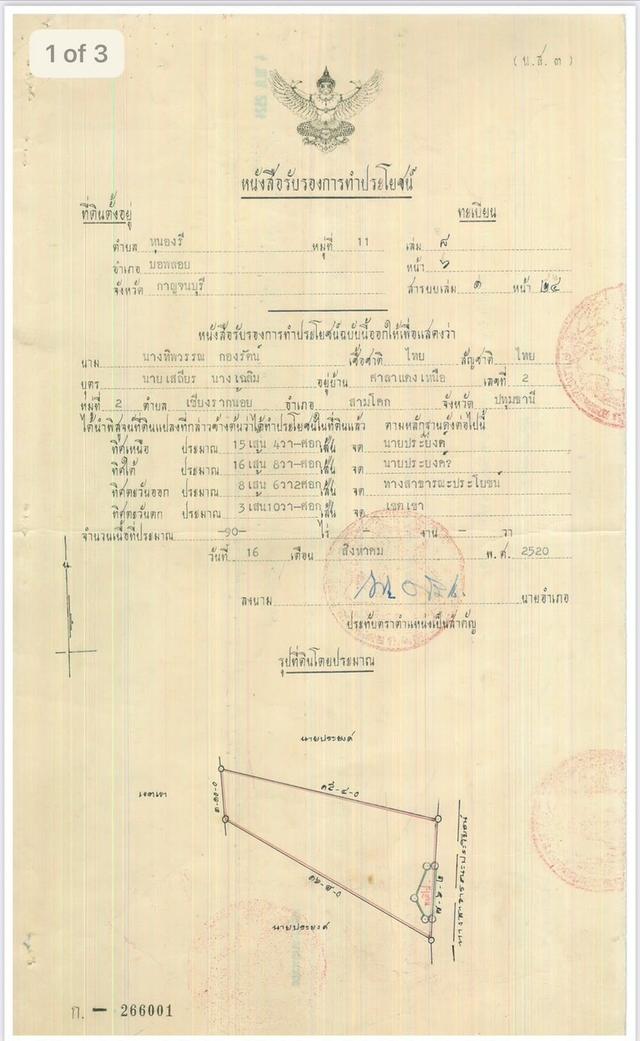 1 of 3
(น.ส. ๓)
หนังสือรับรองการทำประโยชน์
ที่ดินตั้งอยู่
ทะเบียน
ตำบล หนองรี หมู่ที่ 11 เล่ม ๘
อำเภอ บ่อพลอย หน้า ๖
จังหวัด กาญจนบุรี สารบบเล่ม ๑ หน้า ๒๔
หนังสือรับรองการทำประโยชน์ฉบับนี้ออกให้เพื่อแสดงว่า
นาม นางทิพวรรณ กองรัตน์ เชื้อชาติ ไทย สัญชาติ ไทย
บุตร นายเสถียร นางเฉลิม อยู่บ้าน ศาลาแดงเหนือ เลขที่ 2
หมู่ที่ 2 ตำบล เชียงรากน้อย อำเภอ สามโคก จังหวัด ปทุมธานี
ได้นำพิสูจน์ที่ดินแปลงที่กล่าวข้างต้นว่าได้ทำประโยชน์ในที่ดินแล้ว ตามหลักฐานดังต่อไปนี้
ทิศเหนือ ประมาณ 15 เส้น 4วา-ศอก เส้น จด นายประยงค์
ทิศใต้ ประมาณ 16 เส้น 8วา-ศอก เส้น จด นายประยงค์
ทิศตะวันออก ประมาณ 8 เส้น 6วา2ศอก เส้น จด ทางสาธารณะประโยชน์
ทิศตะวันตก ประมาณ 3 เส้น10วา-ศอก เส้น จด เขตเขา
จำนวนเนื้อที่ประมาณ -90- ไร่ - งาน - วา
วันที่ 16 เดือน สิงหาคม พ.ศ. 2520
ลงนาม นายอำเภอ
ประทับตราตำแหน่งเป็นสำคัญ
รูปที่ดินโดยประมาณ
นายประยงค์
เขตเขา
๑๕-๔-๐
๓-๑๐-๐
๑๖-๘-๐
๘-๖-๒
นายประยงค์
ก. - 266001